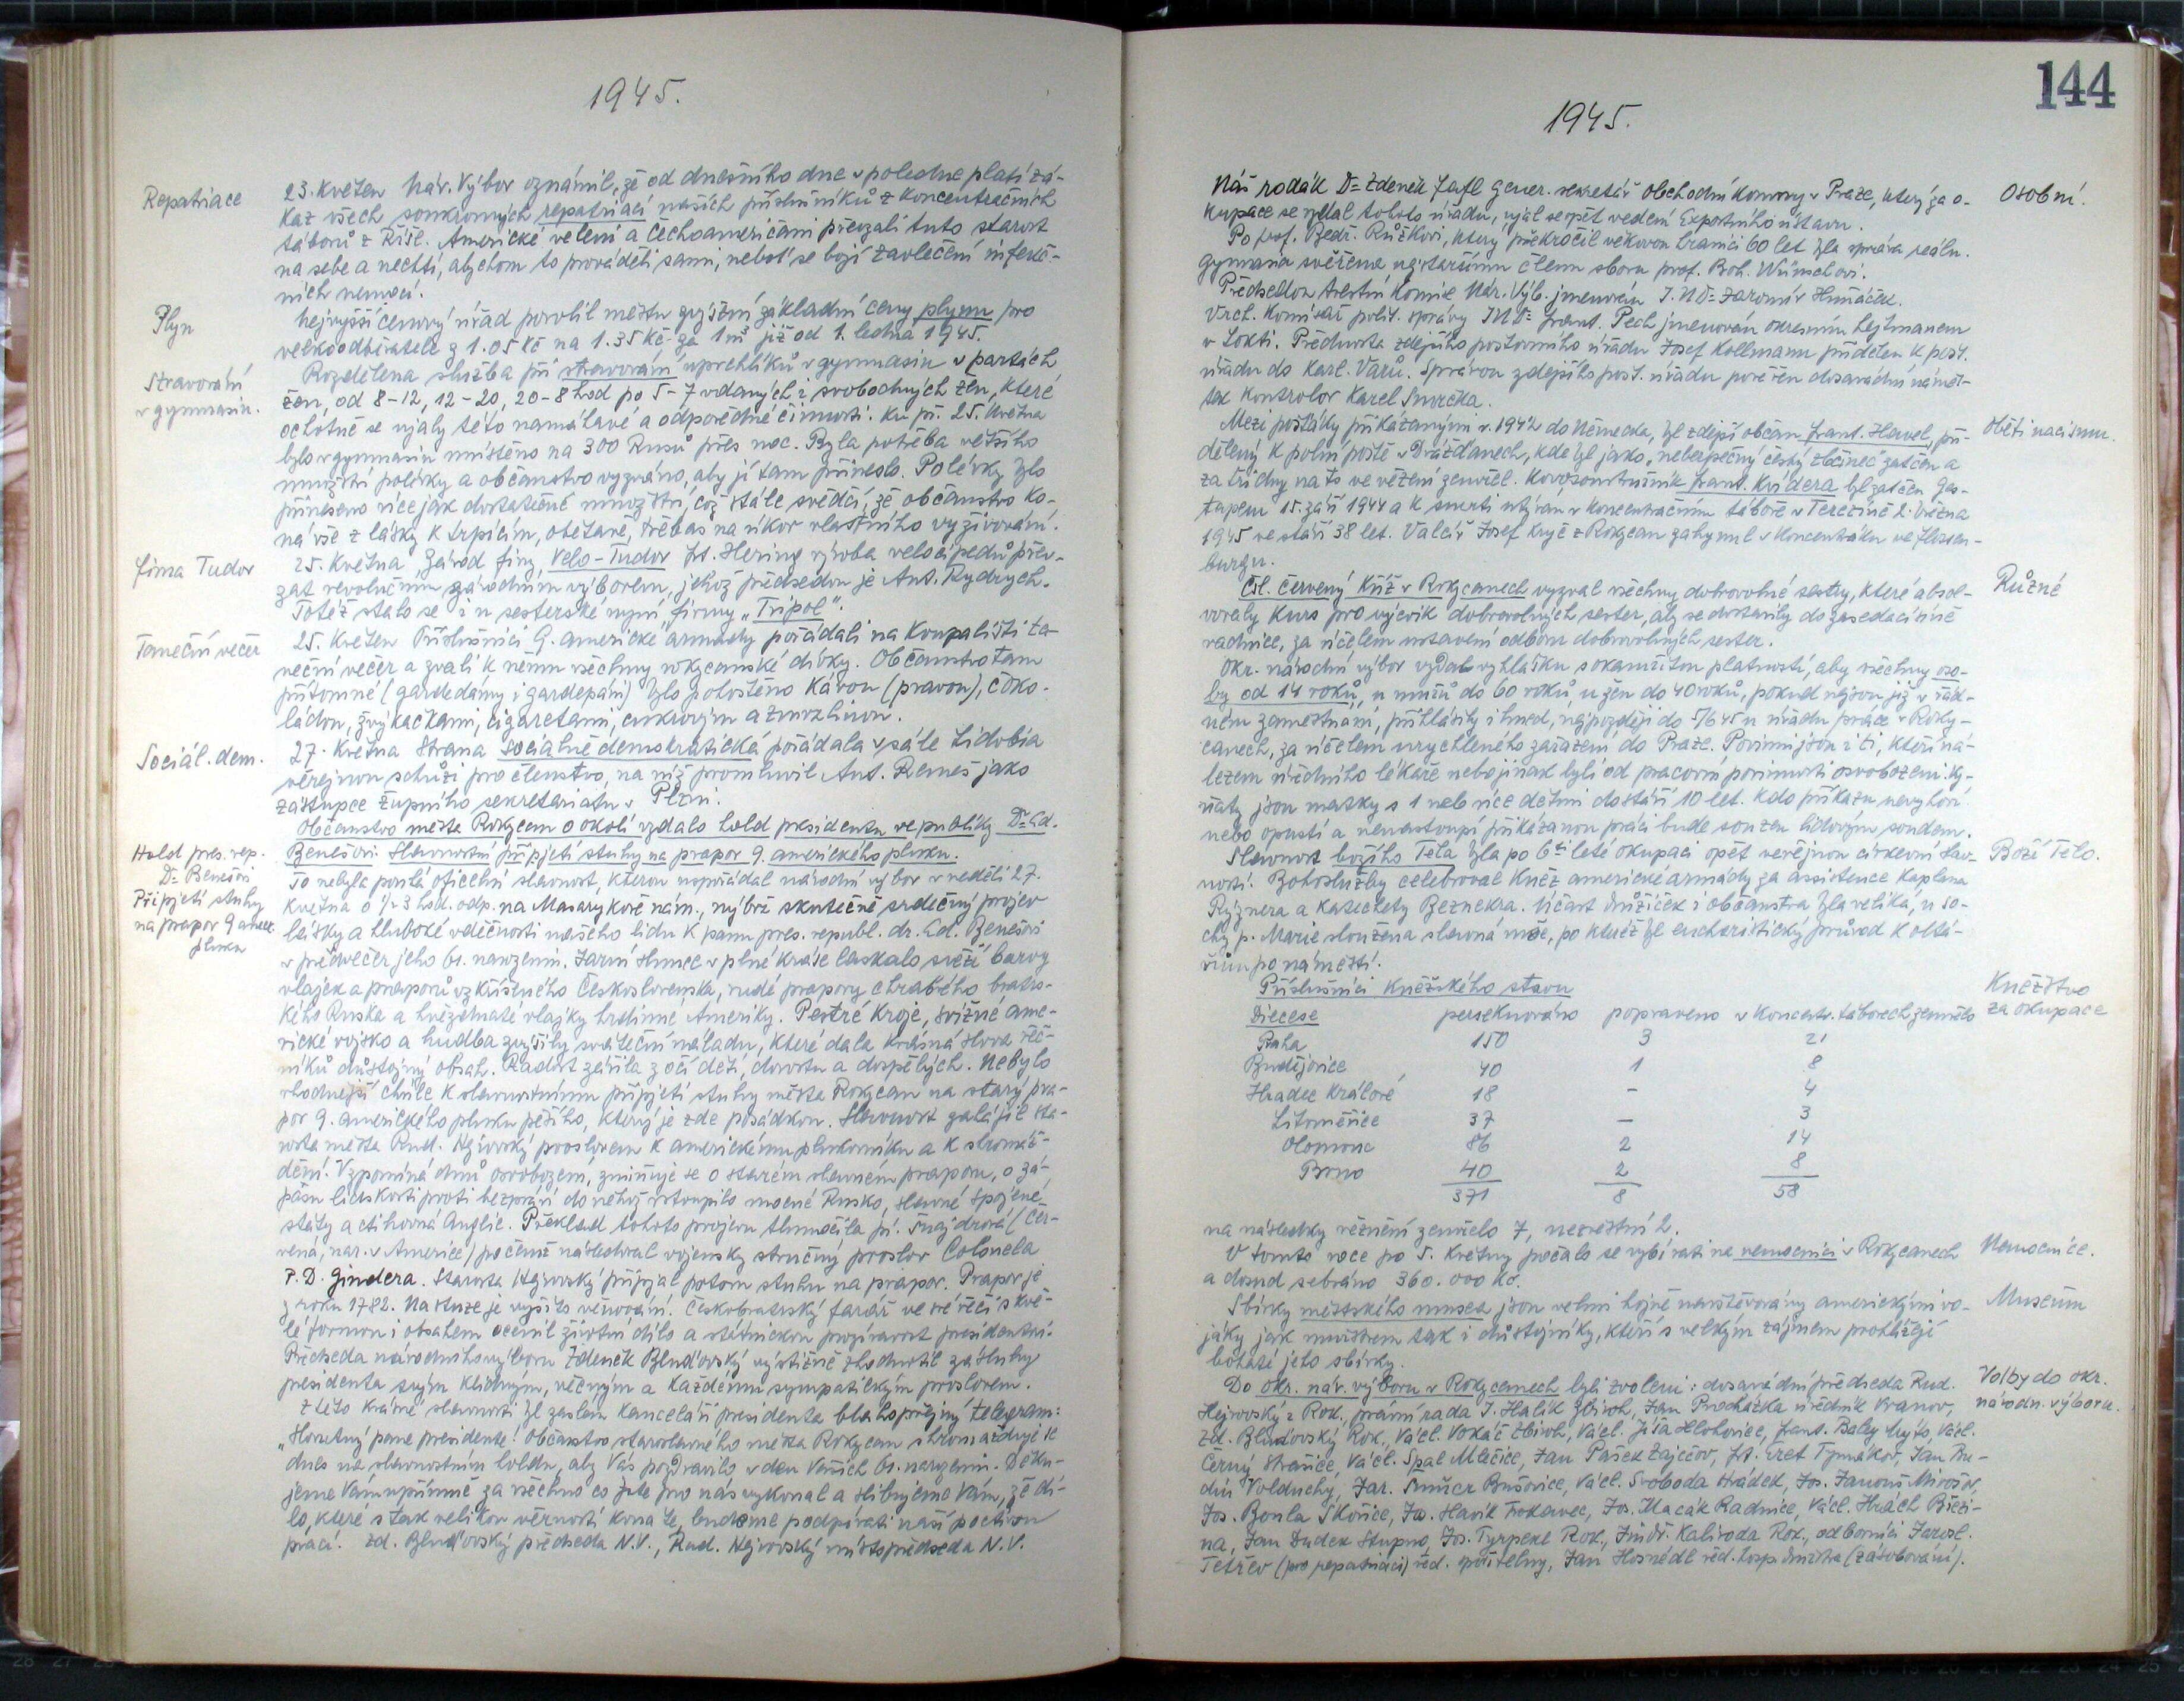 1945.
Repatriace
23. Květen Nár. Výbor oznámil, že od dnešního dne v poledne platí zá-
kaz všech soukromých repatriací našich příslušníků z koncentračních
táborů z Říše. Americké velení a čechoameričani převzali tuto starost
na sebe a nechtí, abychom to prováděli sami, neboť se bojí zavlečení infekč-
ních nemocí.
Plyn
Nejvyšší cenový úřad povolil městu zvýšení základní ceny plynu pro
velkoodběratele z 1.05 Kč na 1.35 Kč za 1 m³ již od 1. ledna 1945.
Stravování
v gymnasiu.
Rozdělena služba při stravování uprchlíků v gymnasiu v partách
žen, od 8-12, 12-20, 20-8 hod po 5-7 vdaných i svobodných žen, které
ochotně se ujaly této namáhavé a odpovědné činnosti. Ku př. 25. května
bylo v gymnasiu umístěno na 300 Rusů přes noc. Byla potřeba většího
množství polévky a občanstvo vyzváno, aby ji tam přineslo. Polévky bylo
přineseno více jak dostatečné množství, což stále svědčí, že občanstvo ko-
ná vše z lásky k trpícím, obětavě, třebas na úkor vlastního vyživování.
Firma Tudor
25. května, Závod firmy Velo-Tudor Fr. Hering výroba velocipedů přev-
zat revolučním závodním výborem, jehož předsedou je Ant. Rydrych.
Totéž stalo se i u sesterské nyní firmy „Tripol".
Taneční večer
25. Květen Příslušníci 9. americké armády pořádali na koupališti ta-
neční večer a zvali k němu všechny rokycanské dívky. Občanstvo tam
přítomné (gardedámy i gardepáni) bylo pohoštěno kávou (pravou), čoko-
ládou, žvýkačkami, cigaretami, cukrovím a zmrzlinou.
Sociál. dem.
27. května Strana sociálně demokratická pořádala v sále Lidobia
veřejnou schůzi pro členstvo, na níž promluvil Ant. Remeš jako
zástupce župního sekretariátu v Plzni.
Hold pres. rep.
Dr Benešovi
Připjetí stuhy
na prapor 9 americ.
pluku
Občanstvo města Rokycan a okolí vzdalo hold presidentu republiky Dr Ed.
Benešovi. Slavnostní připjetí stuhy na prapor 9. amerického pluku.
To nebyla pouhá oficielní slavnost, kterou uspořádal národní výbor v neděli 27.
května o ½3 hod. odp. na Masarykově nám., nýbrž skutečně srdečný projev
lásky a hluboké vděčnosti našeho lidu k panu pres. republ. dr. Ed. Benešovi
v předvečer jeho 61. narozenin. Jarní slunce v plné kráse laskalo svěží barvy
vlajek a praporů vzkříšeného Československa, rudé prapory chrabrého bratrs-
kého Ruska a hvězdnaté vlajky hrdinné Ameriky. Pestré kroje, svižné ame-
rické vojsko a hudba zvýšily sváteční náladu, které dala krásná slova řeč-
níků důstojný obsah. Radost zářila z očí dětí, dorostu a dospělých. Nebylo
vhodnější chvíle k slavnostnímu připjetí stuhy města Rokycan na starý pra-
por 9. amerického pluku pěšího, který je zde posádkou. Slavnost zahájil sta-
rosta města Rud. Hejrovský proslovem k americkému plukovníku a k shromáž-
dění. Vzpomíná dnů osvobození, zmiňuje se o starém slavném praporu, o zá-
pasu lidskosti proti bezpráví do něhož vstoupilo mocné Rusko, slavné Spojené
státy a ctihodná Anglie. Překlad tohoto projevu tlumočila pí. Šnajdrová (Čer-
vená, nar. v Americe) po čemž následoval vojensky stručný proslov Colonela
P. D. Gindera. Starosta Hejrovský připjal potom stuhu na prapor. Prapor je
z roku 1782. Na stuze je vyšito věnování. Českobratrský farář ve své řeči skvě-
lé formou i obsahem ocenil životní dílo a státnickou prozíravost presidentovu.
Předseda národního výboru Zdeněk Bluďovský výstižně zhodnotil zásluhy
presidenta svým klidným, věcným a každému sympatickým proslovem.
Z této krásné slavnosti byl zaslán kanceláři presidenta blahopřejný telegram:
„Hluboctěný pane presidente! Občanstvo staroslavného města Rokycan shromažďuje se
dnes na slavnostním holdu, aby Vás pozdravilo v den Vašich 61. narozenin. Děku-
jeme Vám upřímně za všechno co jste pro nás vykonal a slibujeme Vám, že dí-
lo, které s tak velikou věrností konáte, budeme podpírati naší poctivou
prací! Zd. Bluďovský předseda N.V., Rud. Hejrovský místopředseda N.V.
144
1945.
Osobní.
Náš rodák Dr Zdeněk Fafl gener. sekretář Obchodní komory v Praze, který za o-
kupace se vzdal tohoto úřadu, ujal se opět vedení Exportního ústavu.
Po prof. Bedř. Růžkovi, který překročil věkovou hranici 60 let byla správa reáln.
gymnasia svěřena nejstaršímu členu sboru prof. Boh. Wünschovi.
Předsedou trestní komise Nár. Výb. jmenován J. U Dr Jaromír Husáček.
Vrch. komisař polit. správy JUDr Frant. Pech jmenován okresním hejtmanem
v Lokti. Přednosta zdejšího poštovního úřadu Josef Kollmann přidělen k pošt.
úřadu do Karl. Varů. Správou zdejšího pošt. úřadu pověřen dosavadní náměs-
tek kontrolor Karel Smrčka.
Oběti nacismu.
Mezi pošťáky přikázanými r. 1942 do Německa, byl zdejší občan Frant. Havel, při-
dělený k polní poště v Drážďanech, kde byl jako „nebezpečný český zločinec" zatčen a
za tři dny na to ve vězení zemřel. Kovosoustružník Frant. Kvídera byl zatčen Ges-
tapem 15. září 1944 a k smrti utýrán v koncentračním táboře v Terezíně 2. března
1945 ve stáří 38 let. Valcíř Josef Kryč z Rokycan zahynul v koncentráku ve Flossen-
burgu.
Různé
Čsl. červený kříž v Rokycanech vyzval všechny dobrovolné sestry, které absol-
vovaly kurs pro výcvik dobrovolných sester, aby se dostavily do zasedací síně
radnice, za účelem ustavení odboru dobrovolných sester.
Okr. národní výbor vydal vyhlášku s okamžitou platností, aby všechny oso-
by od 14 roků, u mužů do 60 roků, u žen do 40 roků, pokud nejsou již v řád-
ném zaměstnání, přihlásily ihned, nejpozději do 5/6 45 u úřadu práce v Roky-
canech, za účelem urychleného zařazení do Práce. Povinni jsou i ti, kteří ná-
lezem úředního lékaře nebo jinak byli od pracovní povinnosti osvobozeni. Vy-
ňaty jsou matky s 1 neb více dětmi do stáří 10 let. Kdo příkazu nevyhoví
nebo opustí a nenastoupí přikázanou práci bude souzen lidovým soudem.
Boží Tělo.
Slavnost božího Těla byla po 6ti leté okupaci opět veřejnou církevní slav-
ností. Bohoslužby celebroval kněz americké armády za assistence kaplana
Rýznera a katechety Beznekra. Účast družiček i občanstva byla veliká, u so-
chy p. Marie sloužena slavná mše, po které byl eucharistický průvod k oltá-
řům po náměstí.
Kněžstvo
za okupace
Příslušníci kněžského stavu
Diecese persekvováno popraveno v koncentr. táborech zemřelo
Praha 150 3 21
Budějovice 40 1 8
Hradec Králové 18 - 4
Litoměřice 37 - 3
Olomouc 86 2 14
Brno 40 2 8
371 8 58
na následky věznění zemřelo 7, nezvěstní 2.
Nemocnice.
V tomto roce po 5. květnu počalo se vybírati na nemocnici v Rokycanech
a dosud sebráno 360.000 Kč.
Museum
Sbírky městského musea jsou velmi hojně navštěvovány americkými vo-
jáky jak mužstvem tak i důstojníky, kteří s velkým zájmem prohlížejí
bohaté jeho sbírky.
Volby do okr.
národn. výboru.
Do okr. nár. výboru v Rokycanech byli zvoleni: dosavadní předseda Rud.
Hejrovský z Rok., právní rada J. Halík Zbiroh, Jan Procházka úředník Vranov,
Zd. Bluďovský Rok., Václ. Vokáč Zbiroh, Václ. Jíša Hlohovice, Frant. Baley Mýto, Václ.
Černý Strašice, Václ. Špal Mlečice, Jan Pašek Zaječov, Fr. Uzet Týmákov, Jan Bu-
dín Volduchy, Jar. Šmůcr Bušovice, Václ. Svoboda Hrádek, Jos. Janouš Mirošov,
Jos. Boula Skořice, Jos. Slavík Trokavec, Jos. Macák Radnice, Václ. Hrách Březi-
na, Jan Dudek Stupno, Jos. Tyrpekl Rok., Jindř. Kalivoda Rok., odborníci Jarosl.
Tetřev (pro repatriaci) řed. spořitelny, Jan Hosnédl řed. hosp. družstva (zásobování).